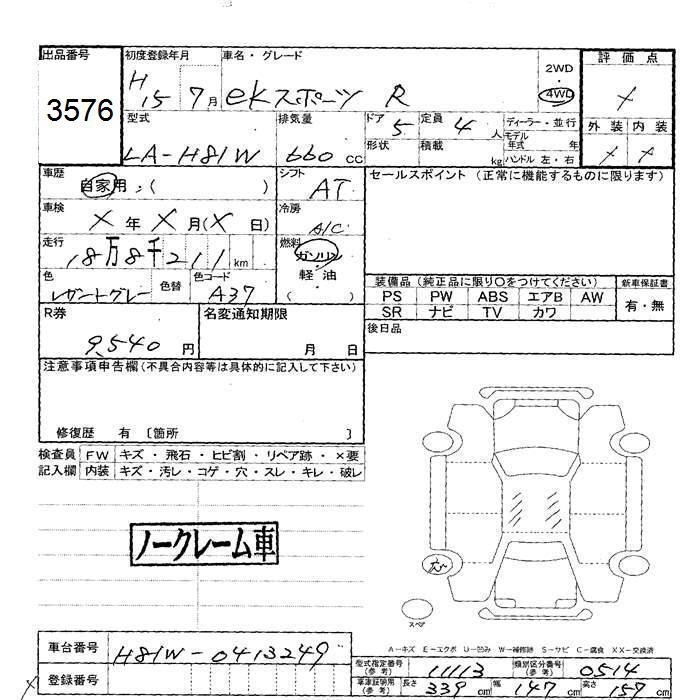 出品番号
3576
初度登録年月
H 15 7月
車名・グレード
ekスポーツ R
2WD
・
4WD
評価点
外装 内装
型式
LA-H81W
排気量
660 cc
ドア 5
形状
定員 4 人
積載 kg
ディーラー・並行
モデル
年式 年
ハンドル 左・右
車歴
自家用:( )
シフト
AT
セールスポイント (正常に機能するものに限ります)
車検
× 年 × 月(× 日)
冷房
A/C
走行
18万8千211 km
燃料
ガソリン
軽油
( )
色
レザントグレー
色替
色コード
A37
装備品(純正品に限り〇をつけてください)
新車保証書
PS PW ABS エアB AW
SR ナビ TV カワ
有・無
R券
9,540 円
名変通知期限
月 日
後日品
注意事項申告欄(不具合内容等は具体的に記入して下さい)
修復歴 有 〔箇所 〕
検査員
記入欄
FW キズ・飛石・ヒビ割・リペア跡・×要
内装 キズ・汚レ・コゲ・穴・スレ・キレ・破レ
ノークレーム車
穴
スペア
A-キズ E-エクボ U-凹み W-補修跡 S-サビ C-腐食 XX-交換済
車台番号
H81W-0413249
登録番号
型式指定番号
(参考)
11113
類別区分番号
(参考)
0514
車庫証明用
(参考)
長さ 339 cm 幅 147 cm 高さ 157 cm